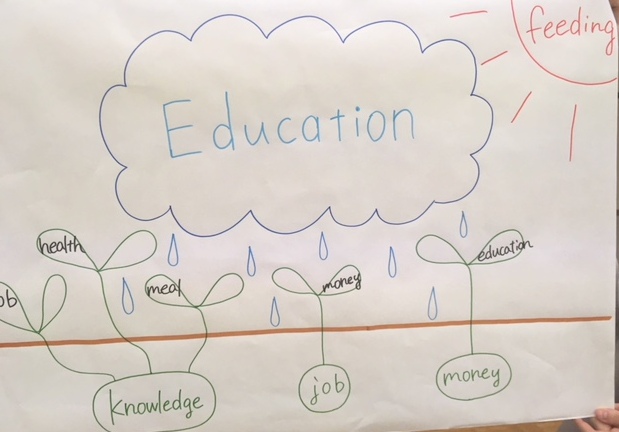 feeding
Education
health
education
meal
money
ob
knowledge
job
money